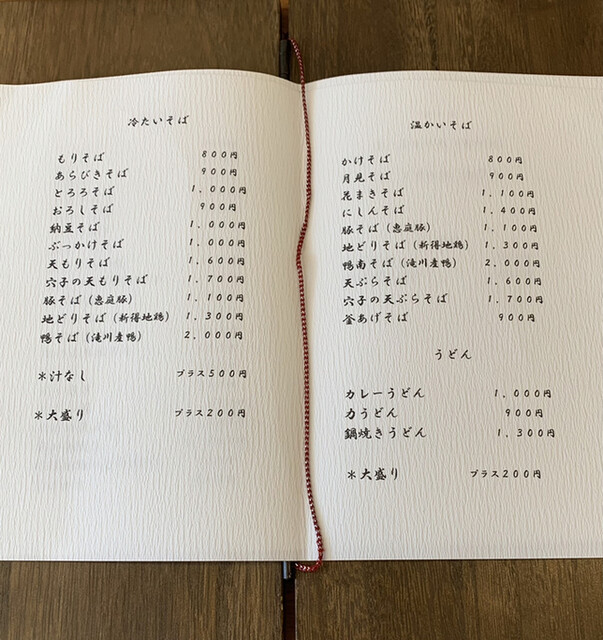 冷たいそば
もりそば 800円
あらびきそば 900円
とろろそば 1,000円
おろしそば 900円
納豆そば 1,000円
ぶっかけそば 1,000円
天もりそば 1,600円
穴子の天もりそば 1,700円
豚そば（恵庭豚） 1,100円
地どりそば（新得地鶏） 1,300円
鴨そば（滝川産鴨） 2,000円
＊汁なし プラス500円
＊大盛り プラス200円
温かいそば
かけそば 800円
月見そば 900円
花まきそば 1,100円
にしんそば 1,400円
豚そば（恵庭豚） 1,100円
地どりそば（新得地鶏） 1,300円
鴨南そば（滝川産鴨） 2,000円
天ぷらそば 1,600円
穴子の天ぷらそば 1,700円
釜あげそば 900円
うどん
カレーうどん 1,000円
力うどん 900円
鍋焼きうどん 1,300円
＊大盛り プラス200円